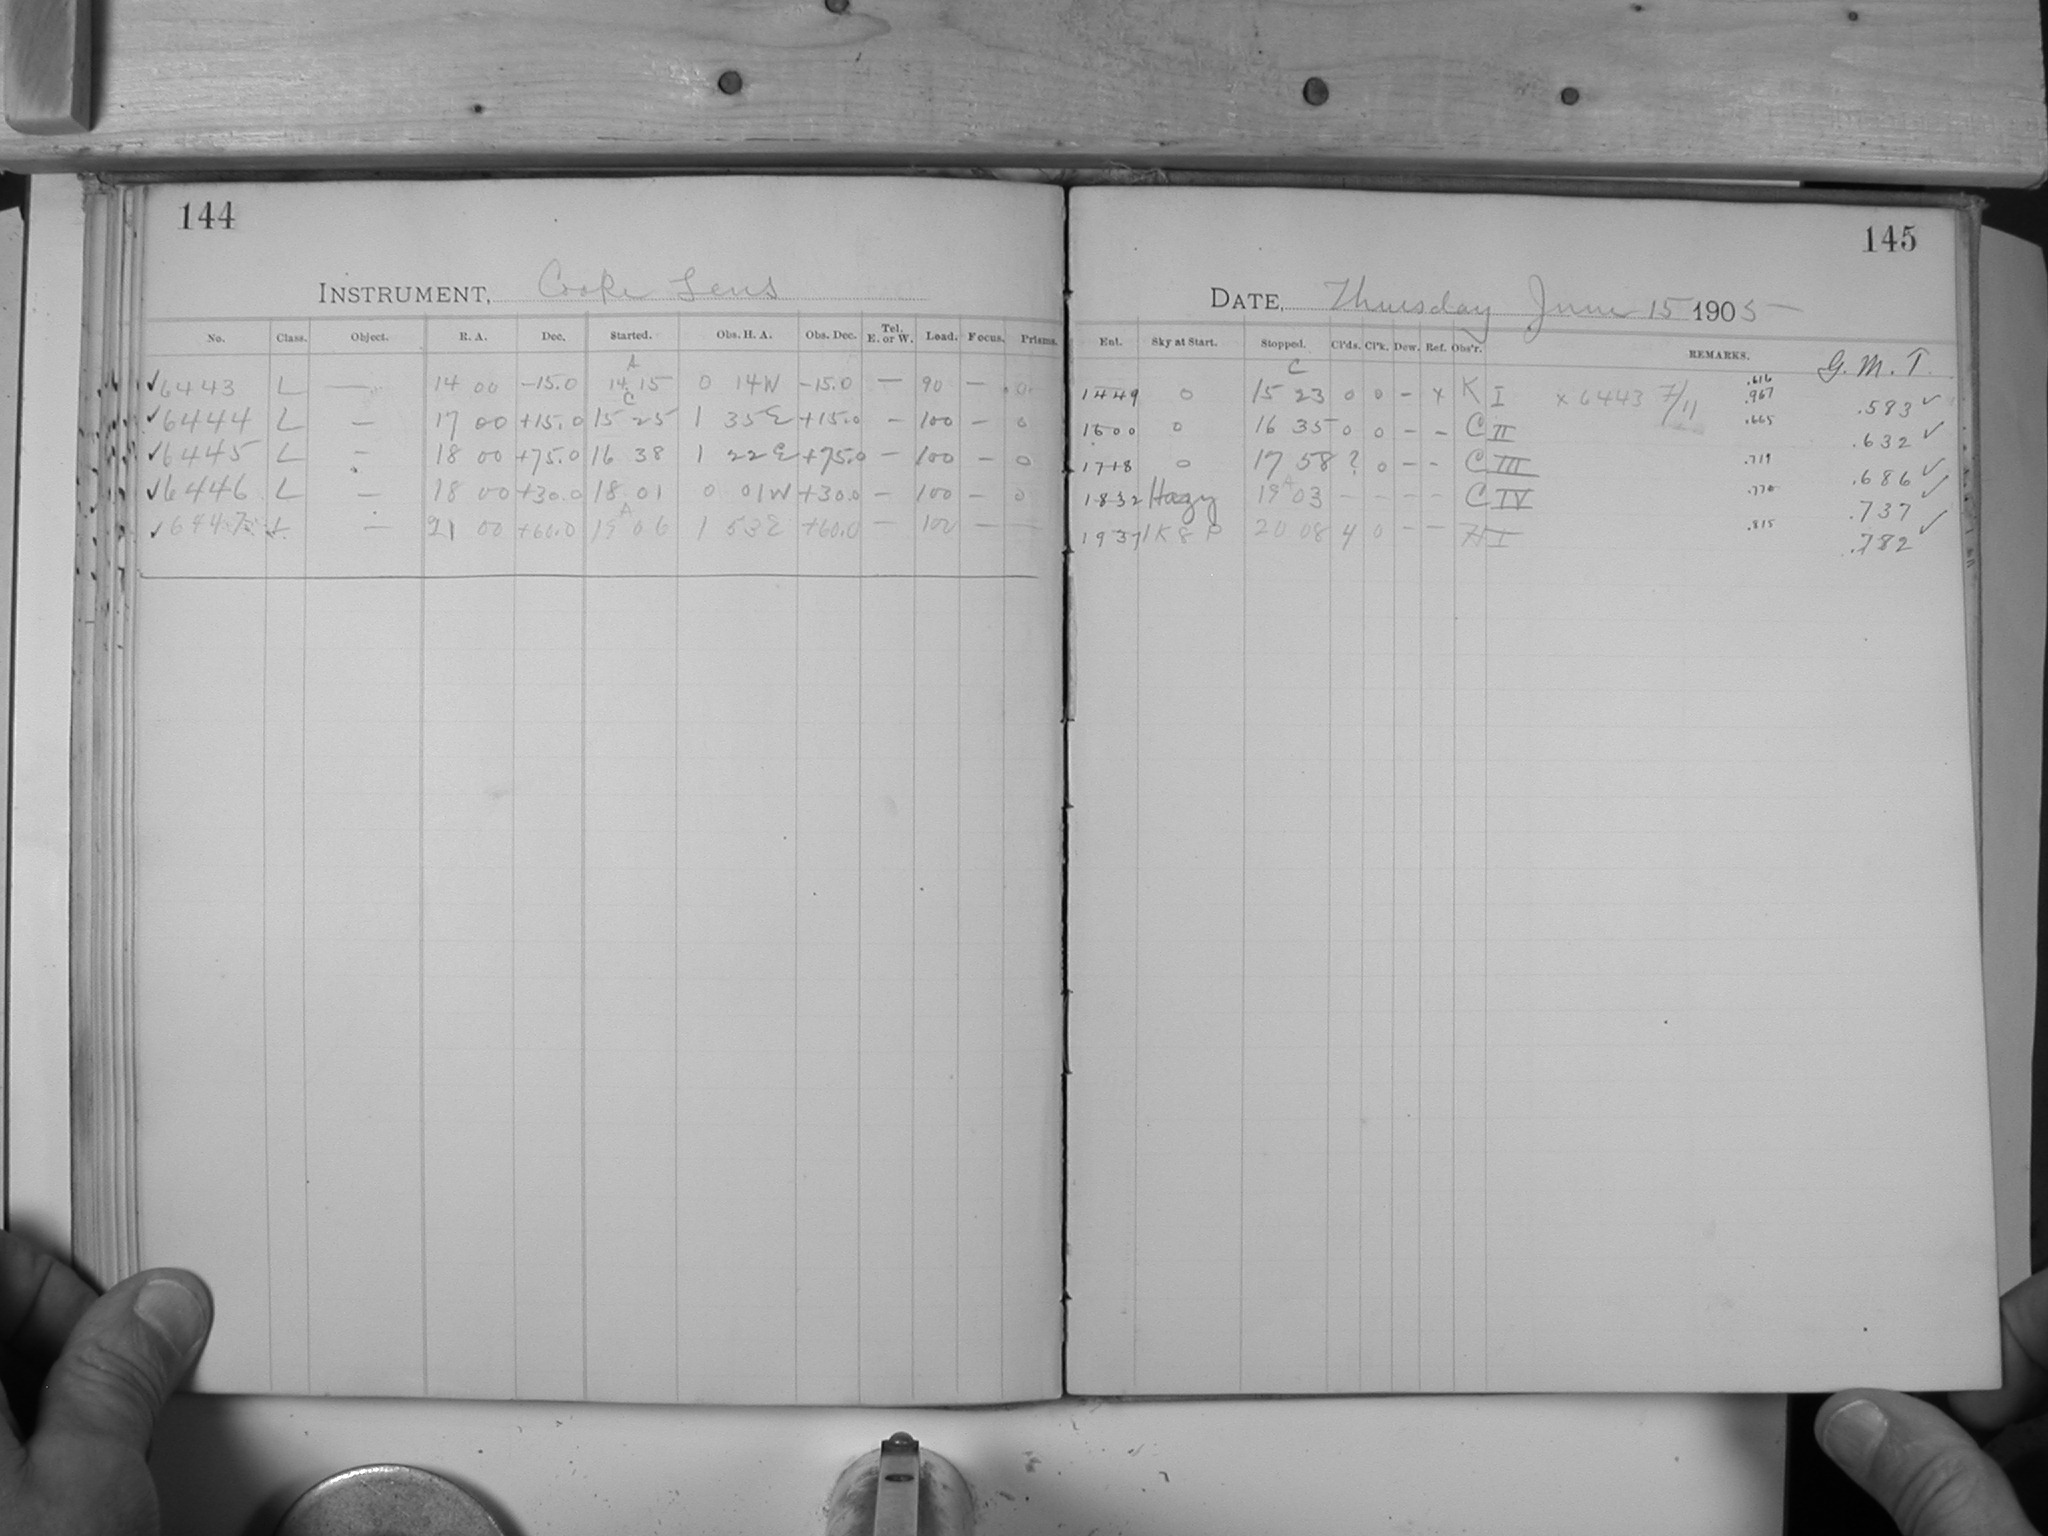 144
INSTRUMENT, Cooke Lens
No. Class. Object. R. A. Dec. Started. Obs. H. A. Obs. Dec. Tel. E. or W. Load. Focus. Prisms.
A
✓6443 L — 14 00 -15.0 14 15 0 14W -15.0 — 90 — 0
C
✓6444 L — 17 00 +15.0 15 25 1 35E +15.0 — 100 — 0
✓6445 L — 18 00 +75.0 16 38 1 22E +75.0 — 100 — 0
✓6446 L — 18 00 +30.0 18 01 0 01W +30.0 — 100 — 0
A
✓6447 L — 21 00 +60.0 19 06 1 53E +60.0 — 100 — —
145
DATE, Thursday June 15 1905
Ent. Sky at Start. Stopped. Cl'ds. Cl'k. Dew. Ref. Obs'r. REMARKS. G. M. T.
C
1449 0 15 23 0 0 – x K I x 6443 7/11 .616 .967 .583 ✓
1600 0 16 35 0 0 – – C II .665 .632 ✓
1718 0 17 58 ? 0 – – C III .719 .686 ✓
A
1832 Hazy 19 03 – – – – C IV .770 .737 ✓
1937 1K8P 20 08 4 0 – – .815 .782 ✓